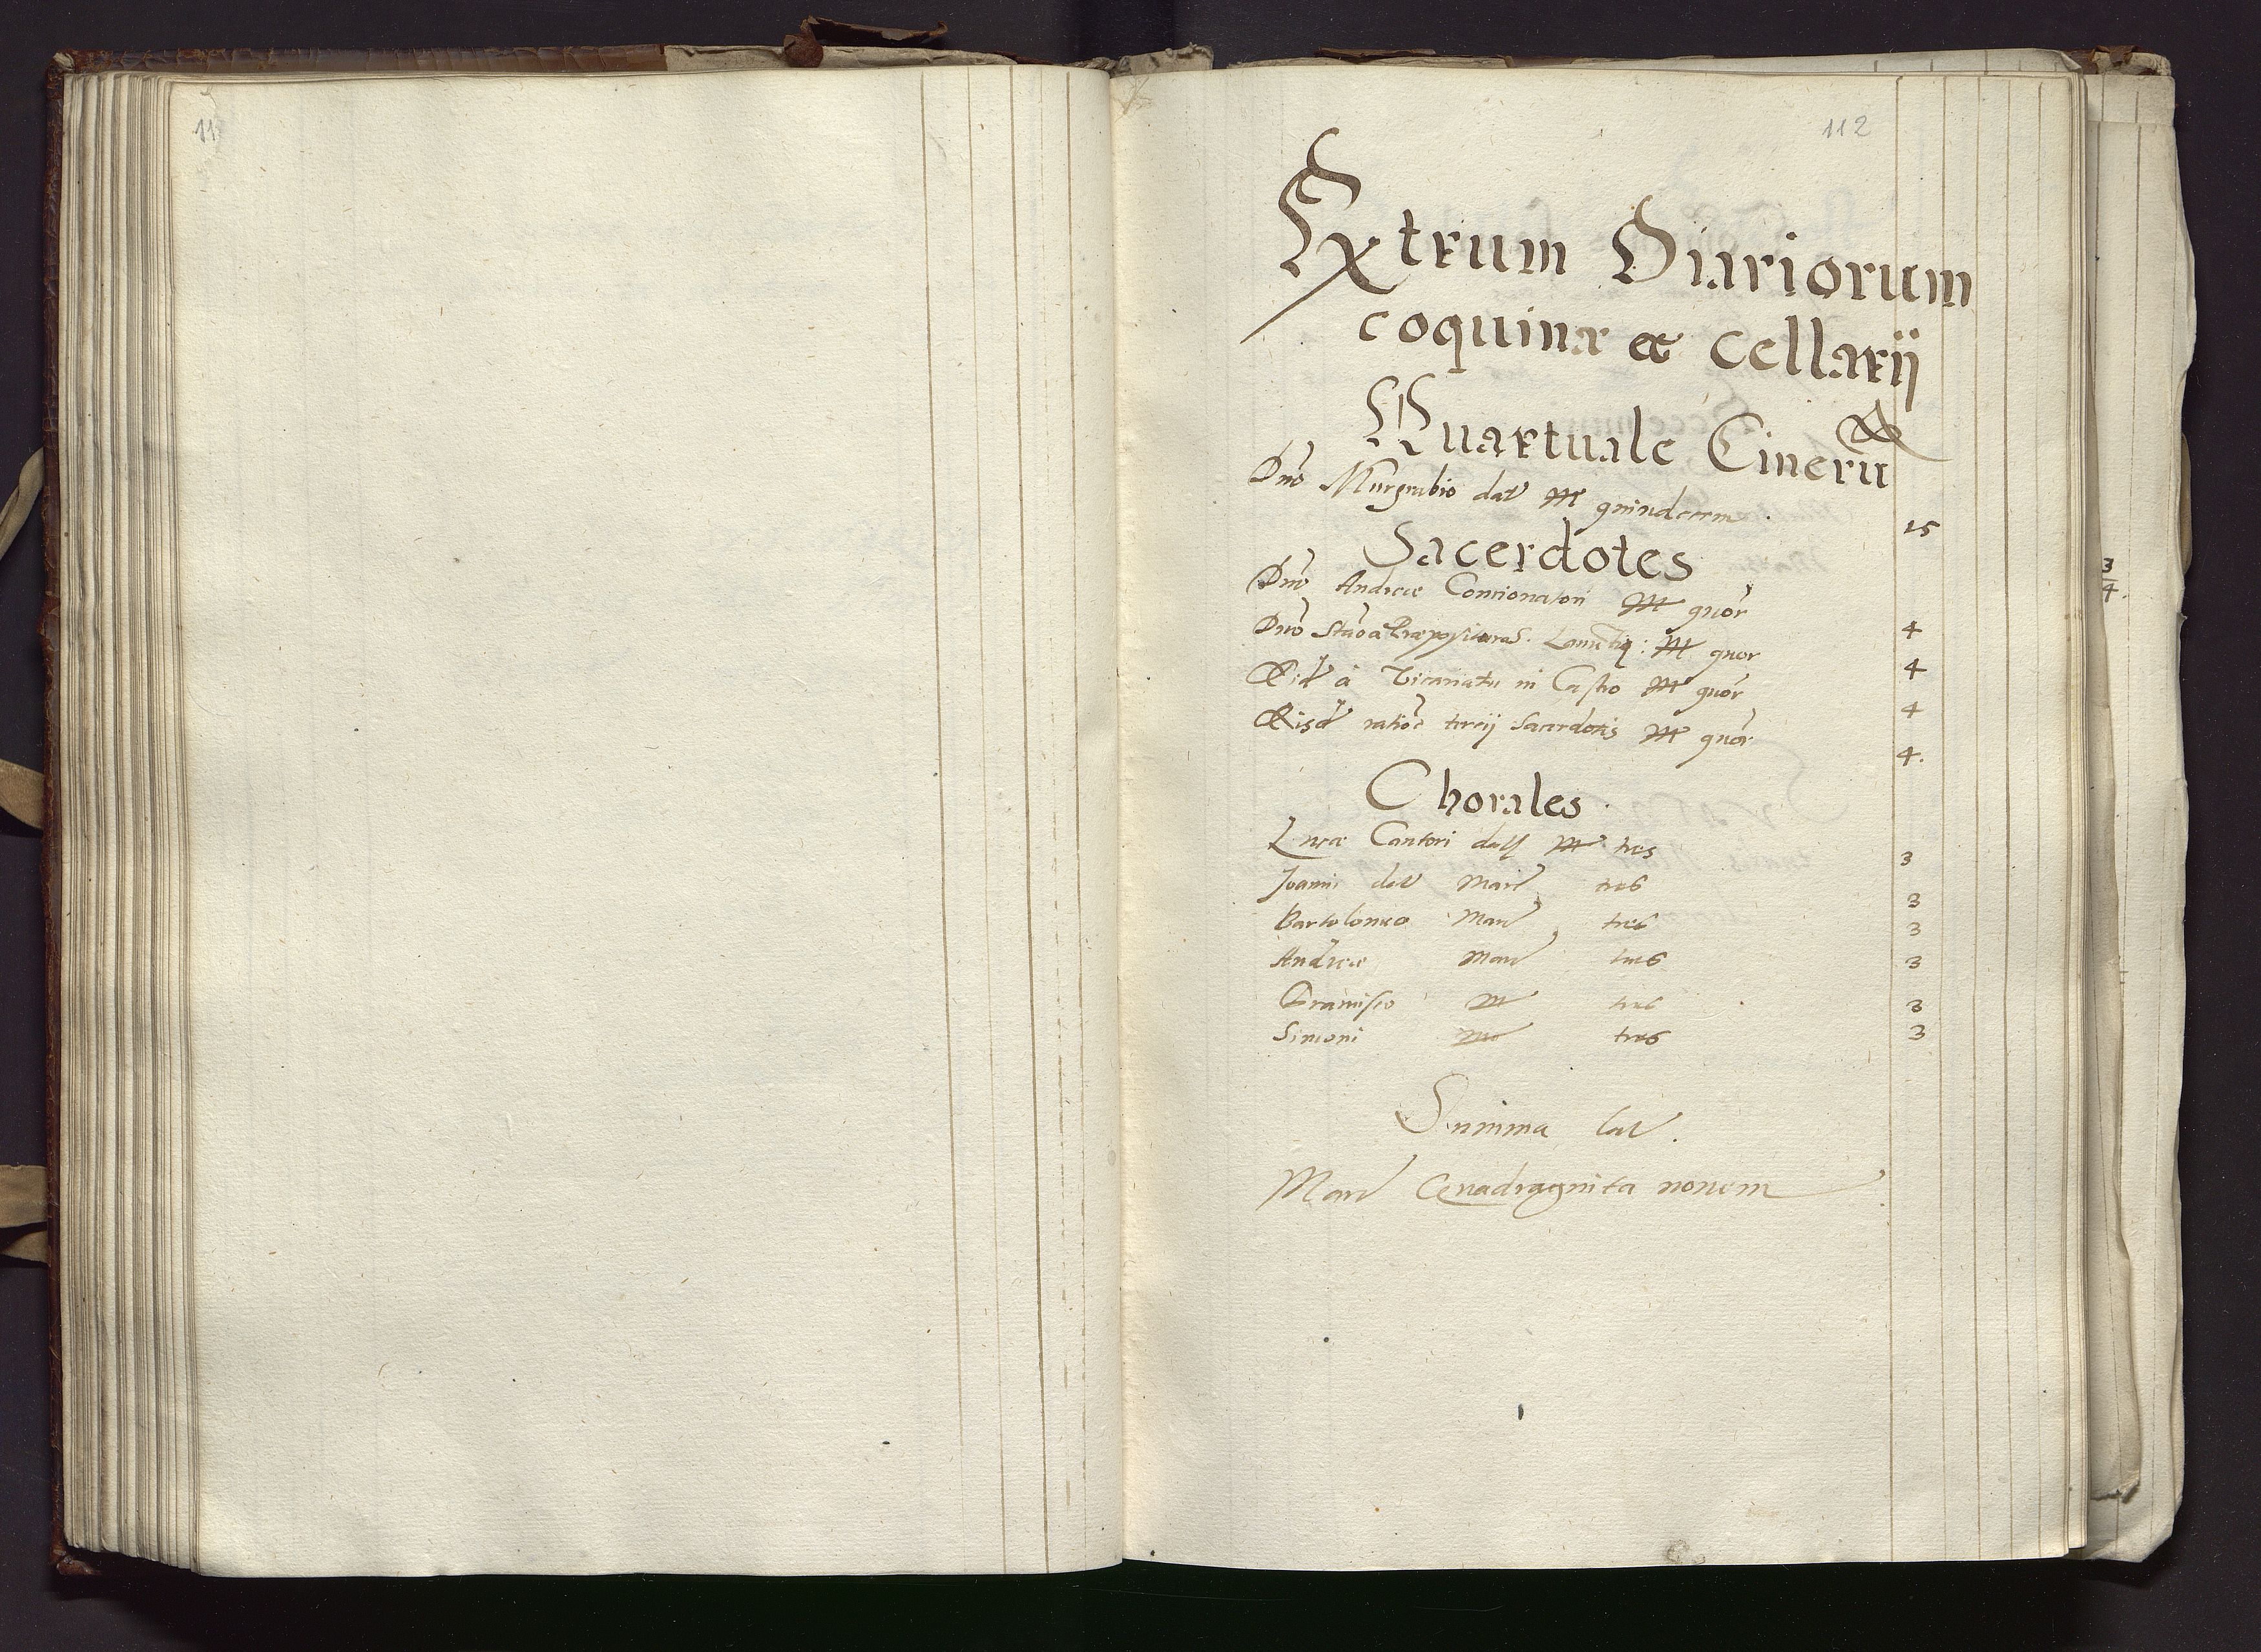 11
112
Extrum Diariorum
coquinæ et Cellarij
Quartuale Cinerū
Dno Murgrabio dat M quindecim 15
Sacerdotes
Dno Andreæ Concionatori M quor 4
Dno a Præpositura M quor 4
Eid à Vicariatu in Castro M quor 4
Eisd ratioe tercij Sacerdotis M quor 4.
Chorales
Lucæ Cantori M tres 3
Joanni dat Marc tres 3
Bartolomeo Marc tres 3
Andreæ Marc tres 3
Francisco M tres 3
Simoni tres 3
Summa lat.
Marc Quadraginta novem
3
4.